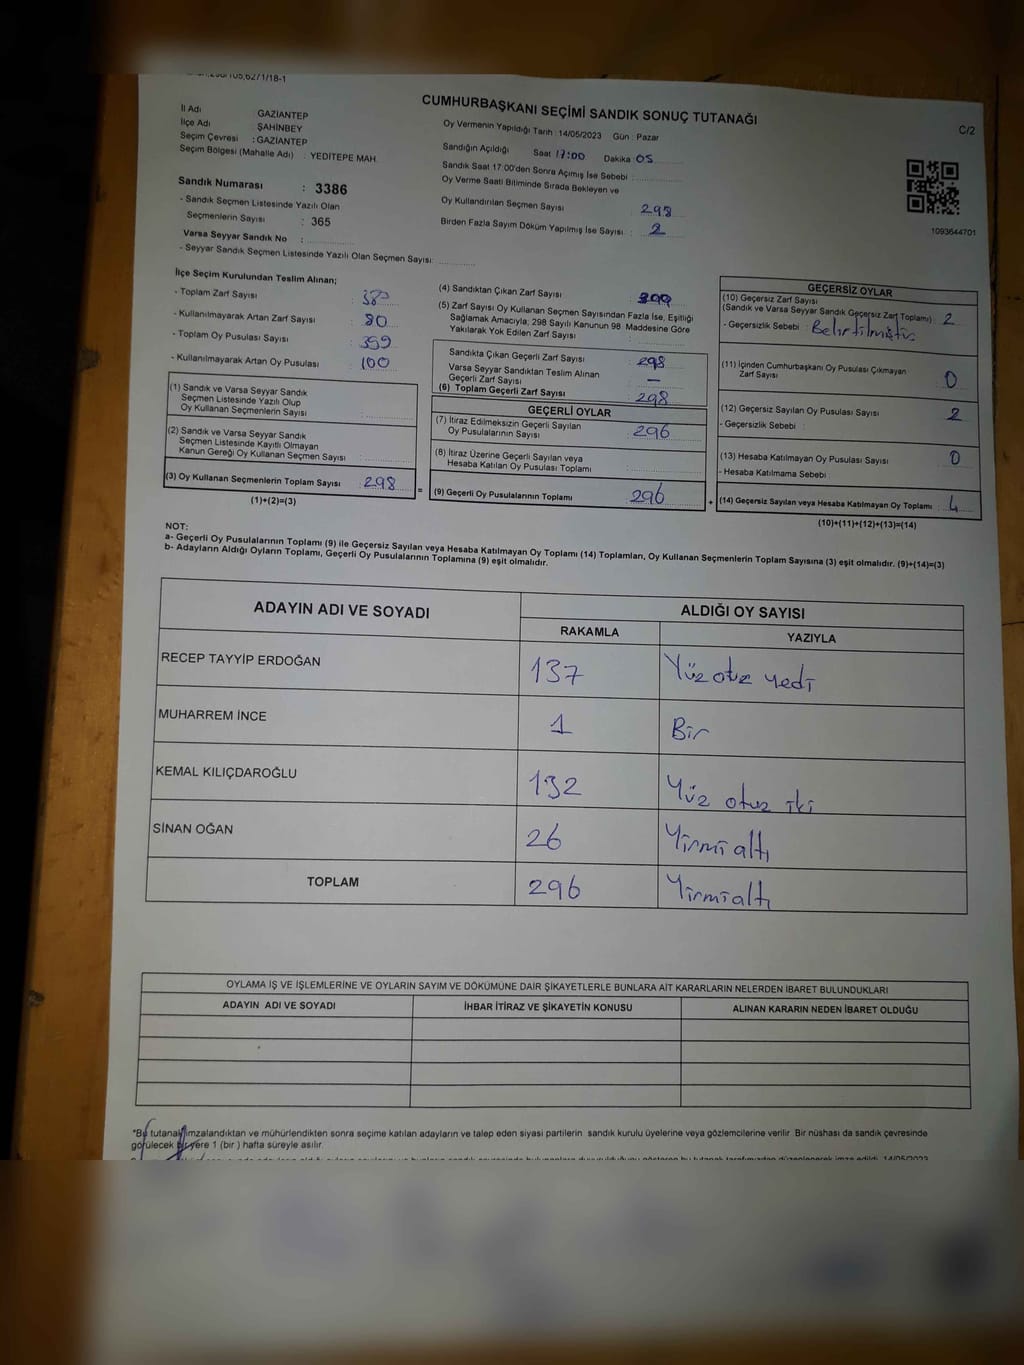 CUMHURBAŞKANI SEÇİMİ SANDIK SONUÇ TUTANAĞI
C/2
İl Adı GAZİANTEP
İlçe Adı ŞAHİNBEY
Seçim Çevresi : GAZİANTEP
Seçim Bölgesi (Mahalle Adı) : YEDİTEPE MAH.
Sandık Numarası : 3386
- Sandık Seçmen Listesinde Yazılı Olan
Seçmenlerin Sayısı : 365
Varsa Seyyar Sandık No :
- Seyyar Sandık Seçmen Listesinde Yazılı Olan Seçmen Sayısı:
Oy Vermenin Yapıldığı Tarih : 14/05/2023 Gün : Pazar
Sandığın Açıldığı Saat 17:00 Dakika 05
Sandık Saat 17:00'den Sonra Açımış İse Sebebi :
Oy Verme Saati Bitiminde Sırada Bekleyen ve
Oy Kullandırılan Seçmen Sayısı 298
Birden Fazla Sayım Döküm Yapılmış İse Sayısı : 2
1093644701
İlçe Seçim Kurulundan Teslim Alınan;
- Toplam Zarf Sayısı :
- Kullanılmayarak Artan Zarf Sayısı : 80
- Toplam Oy Pusulası Sayısı :
- Kullanılmayarak Artan Oy Pusulası : 100
(1) Sandık ve Varsa Seyyar Sandık
Seçmen Listesinde Yazılı Olup
Oy Kullanan Seçmenlerin Sayısı :
(2) Sandık ve Varsa Seyyar Sandık
Seçmen Listesinde Kayıtlı Olmayan
Kanun Gereği Oy Kullanan Seçmen Sayısı :
(3) Oy Kullanan Seçmenlerin Toplam Sayısı : 298
(1)+(2)=(3)
(4) Sandıktan Çıkan Zarf Sayısı :
(5) Zarf Sayısı Oy Kullanan Seçmen Sayısından Fazla İse, Eşitliği
Sağlamak Amacıyla; 298 Sayılı Kanunun 98. Maddesine Göre
Yakılarak Yok Edilen Zarf Sayısı :
Sandıkta Çıkan Geçerli Zarf Sayısı : 298
Varsa Seyyar Sandıktan Teslim Alınan
Geçerli Zarf Sayısı : —
(6) Toplam Geçerli Zarf Sayısı : 298
GEÇERLİ OYLAR
(7) İtiraz Edilmeksizin Geçerli Sayılan
Oy Pusulalarının Sayısı : 296
(8) İtiraz Üzerine Geçerli Sayılan veya
Hesaba Katılan Oy Pusulası Toplamı :
= (9) Geçerli Oy Pusulalarının Toplamı : 296
GEÇERSİZ OYLAR
(10) Geçersiz Zarf Sayısı
(Sandık ve Varsa Seyyar Sandık Geçersiz Zarf Toplamı) : 2
- Geçersizlik Sebebi : Belirtilmiştir
(11) İçinden Cumhurbaşkanı Oy Pusulası Çıkmayan
Zarf Sayısı : 0
(12) Geçersiz Sayılan Oy Pusulası Sayısı : 2
- Geçersizlik Sebebi :
(13) Hesaba Katılmayan Oy Pusulası Sayısı : 0
- Hesaba Katılmama Sebebi :
+ (14) Geçersiz Sayılan veya Hesaba Katılmayan Oy Toplamı : 4
(10)+(11)+(12)+(13)=(14)
NOT:
a- Geçerli Oy Pusulalarının Toplamı (9) ile Geçersiz Sayılan veya Hesaba Katılmayan Oy Toplamı (14) Toplamları, Oy Kullanan Seçmenlerin Toplam Sayısına (3) eşit olmalıdır. (9)+(14)=(3)
b- Adayların Aldığı Oyların Toplamı, Geçerli Oy Pusulalarının Toplamına (9) eşit olmalıdır.
ADAYIN ADI VE SOYADI ALDIĞI OY SAYISI
RAKAMLA YAZIYLA
RECEP TAYYİP ERDOĞAN 137 Yüz otuz yedi
MUHARREM İNCE 1 Bir
KEMAL KILIÇDAROĞLU 132 Yüz otuz iki
SİNAN OĞAN 26 Yirmi altı
TOPLAM 296 Yirmi altı
OYLAMA İŞ VE İŞLEMLERİNE VE OYLARIN SAYIM VE DÖKÜMÜNE DAİR ŞİKAYETLERLE BUNLARA AİT KARARLARIN NELERDEN İBARET BULUNDUKLARI
ADAYIN ADI VE SOYADI İHBAR İTİRAZ VE ŞİKAYETİN KONUSU ALINAN KARARIN NEDEN İBARET OLDUĞU
*Bu tutanak imzalandıktan ve mühürlendikten sonra seçime katılan adayların ve talep eden siyasi partilerin sandık kurulu üyelerine veya gözlemcilerine verilir. Bir nüshası da sandık çevresinde
görülecek bir yere 1 (bir ) hafta süreyle asılır.